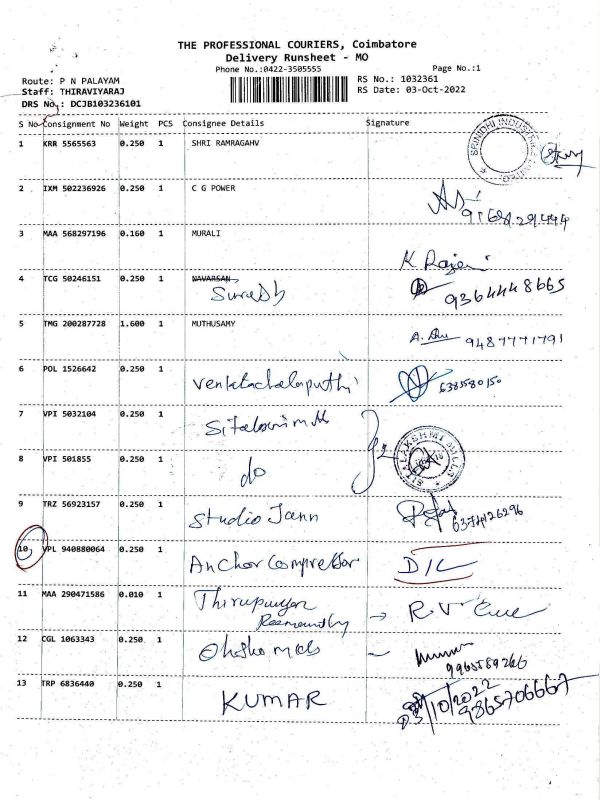 THE PROFESSIONAL COURIERS, Coimbatore
Delivery Runsheet - MO
Phone No.:0422-3505555
Page No.:1
Route: P N PALAYAM
Staff: THIRAVIYARAJ
DRS No.: DCJB103236101
RS No.: 1032361
RS Date: 03-Oct-2022
S No Consignment No Weight PCS Consignee Details Signature
1 KRR 5565563 0.250 1 SHRI RAMRAGAHV
2 IXM 502236926 0.250 1 C G POWER
3 MAA 568297196 0.160 1 MURALI
K Rajeni
4 TCG 50246151 0.250 1 NAVARSAN
Suresh 9364448665
5 TMG 200287728 1.600 1 MUTHUSAMY
9487771791
6 POL 1526642 0.250 1
Venkatachalapathi 6385580150
7 VPI 5032104 0.250 1
SITALAKSHMI MILLS
8 VPI 501855 0.250 1
do
9 TRZ 56923157 0.250 1
Studio Jann
10 VPL 940880064 0.250 1
Anchor Compressor D/L
11 MAA 290471586 0.010 1
12 CGL 1063343 0.250 1
13 TRP 6836440 0.250 1
KUMAR 03/10/2022
9865706667